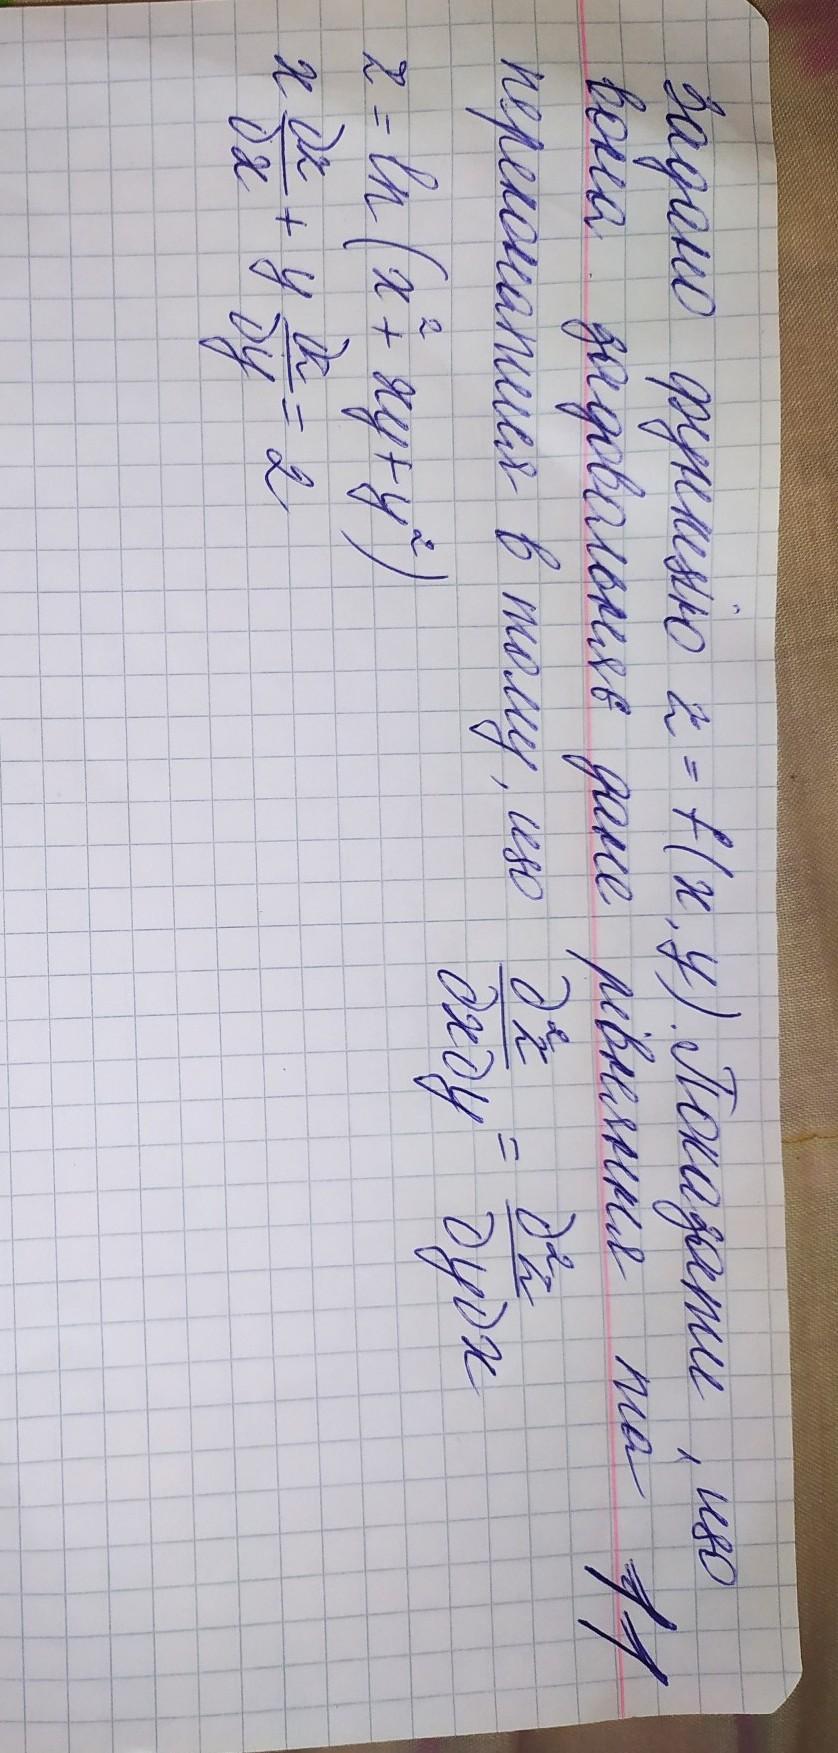 Задано функцію z = f(x, y). Показати, що
вона задовольняє дане рівняння та 11
переконатися в тому, що ∂²z/∂x∂y = ∂²z/∂y∂x
z = ln(x² + xy + y²)
x ∂z/∂x + y ∂z/∂y = 2